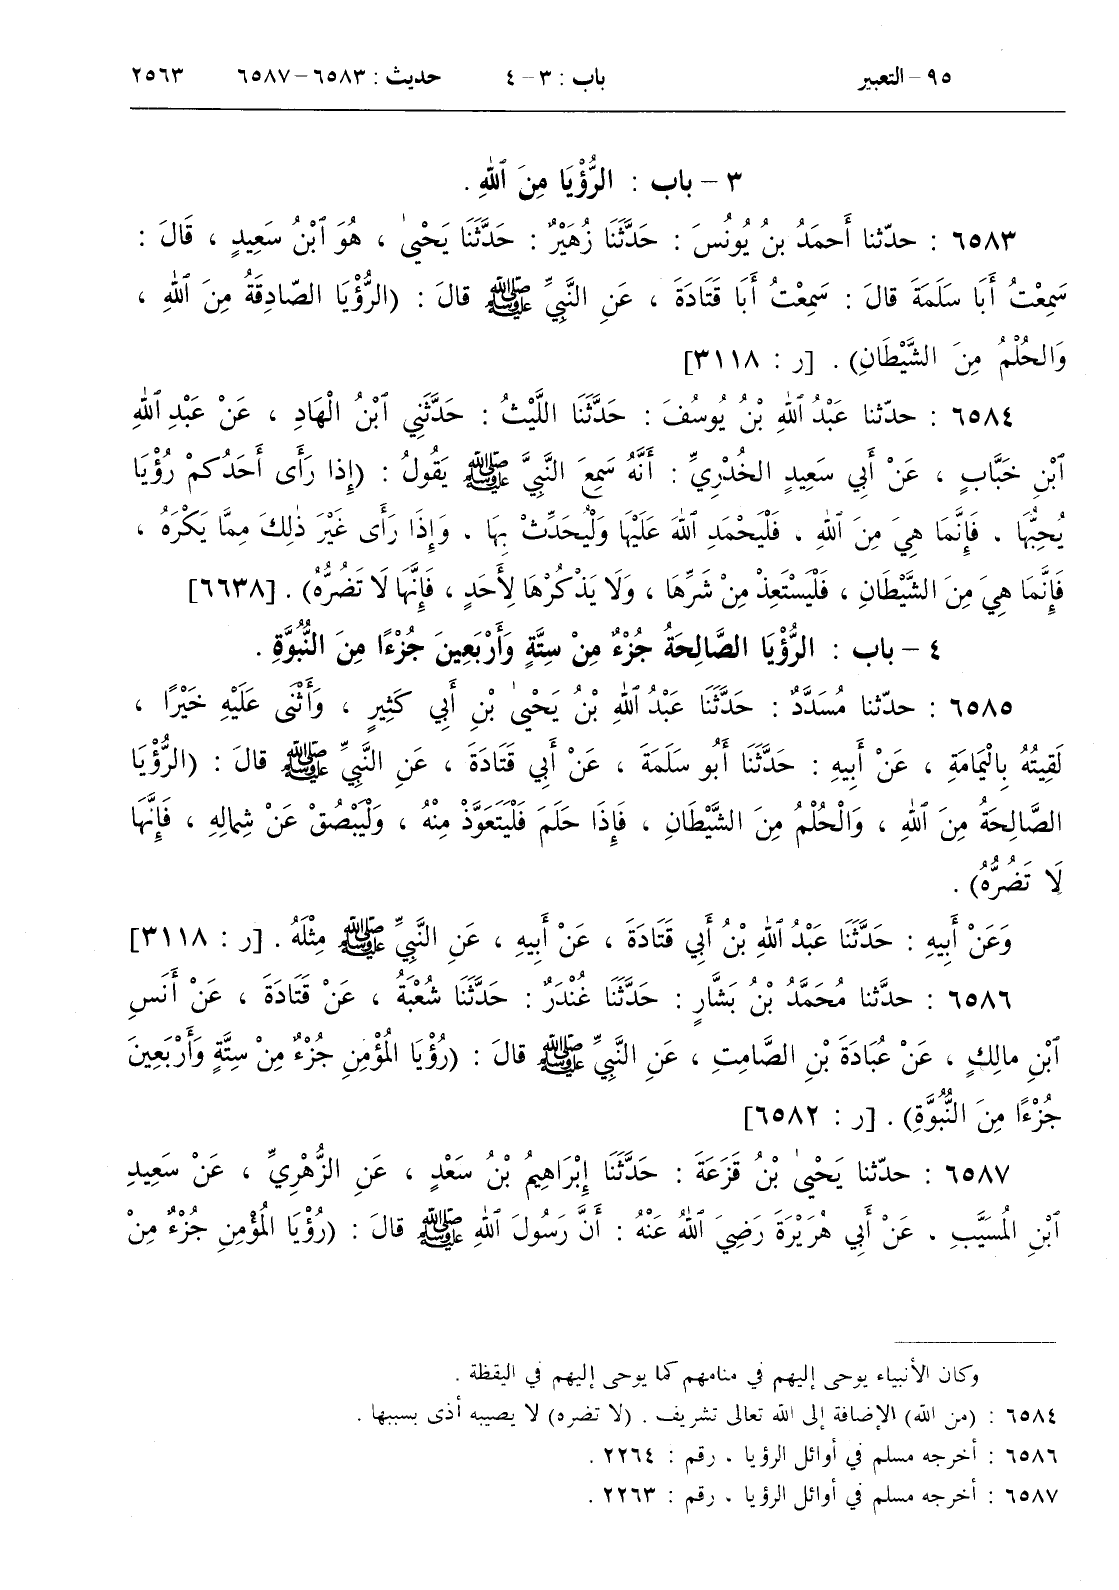 ٩٥ – التعبير باب : ٣ – ٤ حديث : ٦٥٨٣ – ٦٥٨٧ ٢٥٦٣
٣ – باب : الرُّؤْيَا مِنَ ٱللهِ .
٦٥٨٣ : حدّثنا أَحمَدُ بنُ يُونُسَ : حَدَّثَنَا زُهَيْرٌ : حَدَّثَنَا يَحْيىٰ ، هُوَ ٱبْنُ سَعِيدٍ ، قَالَ :
سَمِعْتُ أَبَا سَلَمَةَ قالَ : سَمِعْتُ أَبَا قَتَادَةَ ، عَنِ النَّبِيِّ ﷺ قالَ : (الرُّؤْيَا الصّادِقَةُ مِنَ ٱللهِ ،
وَالحُلْمُ مِنَ الشَّيْطَانِ) . [ر : ٣١١٨]
٦٥٨٤ : حدّثنا عَبْدُ ٱللهِ بْنُ يُوسُفَ : حَدَّثَنَا اللَّيْثُ : حَدَّثَنِي ٱبْنُ الْهَادِ ، عَنْ عَبْدِ ٱللهِ
ٱبْنِ خَبَّابٍ ، عَنْ أَبِي سَعِيدٍ الخُدْرِيِّ : أَنَّهُ سَمِعَ النَّبِيَّ ﷺ يَقُولُ : (إِذا رَأَى أَحَدُكمْ رُؤْيَا
يُحِبُّهَا . فَإِنَّمَا هِيَ مِنَ ٱللهِ . فَلْيَحْمَدِ ٱللهَ عَلَيْهَا وَلْيُحَدِّثْ بِهَا . وَإِذَا رَأَى غَيْرَ ذٰلِكَ مِمَّا يَكْرَهُ ،
فَإِنَّمَا هِيَ مِنَ الشَّيْطَانِ ، فَلْيَسْتَعِذْ مِنْ شَرِّهَا ، وَلَا يَذْكُرْهَا لِأَحَدٍ ، فَإِنَّهَا لَا تَضُرُّهُ) . [٦٦٣٨]
٤ – باب : الرُّؤْيَا الصَّالِحَةُ جُزْءٌ مِنْ سِتَّةٍ وَأَرْبَعِينَ جُزْءًا مِنَ النُّبُوَّةِ .
٦٥٨٥ : حدّثنا مُسَدَّدٌ : حَدَّثَنَا عَبْدُ ٱللهِ بْنُ يَحْيىٰ بْنِ أَبِي كَثِيرٍ ، وَأَثْنَى عَلَيْهِ خَيْرًا ،
لَقِيتُهُ بِالْيَمَامَةِ ، عَنْ أَبِيهِ : حَدَّثَنَا أَبُو سَلَمَةَ ، عَنْ أَبِي قَتَادَةَ ، عَنِ النَّبِيِّ ﷺ قالَ : (الرُّؤْيَا
الصَّالِحَةُ مِنَ ٱللهِ ، وَالْحُلْمُ مِنَ الشَّيْطَانِ ، فَإِذَا حَلَمَ فَلْيَتَعَوَّذْ مِنْهُ ، وَلْيَبْصُقْ عَنْ شِمالِهِ ، فَإِنَّهَا
لَا تَضُرُّهُ) .
وَعَنْ أَبِيهِ : حَدَّثَنَا عَبْدُ ٱللهِ بْنُ أَبِي قَتَادَةَ ، عَنْ أَبِيهِ ، عَنِ النَّبِيِّ ﷺ مِثْلَهُ . [ر : ٣١١٨]
٦٥٨٦ : حدَّثنا مُحَمَّدُ بْنُ بَشَّارٍ : حَدَّثَنَا غُنْدَرٌ : حَدَّثَنَا شُعْبَةُ ، عَنْ قَتَادَةَ ، عَنْ أَنَسِ
ٱبْنِ مالِكٍ ، عَنْ عُبَادَةَ بْنِ الصَّامِتِ ، عَنِ النَّبِيِّ ﷺ قالَ : (رُؤْيَا المُؤْمِنِ جُزْءٌ مِنْ سِتَّةٍ وَأَرْبَعِينَ
جُزْءًا مِنَ النُّبُوَّةِ) . [ر : ٦٥٨٢]
٦٥٨٧ : حدّثنا يَحْيىٰ بْنُ قَزَعَةَ : حَدَّثَنَا إِبْرَاهِيمُ بْنُ سَعْدٍ ، عَنِ الزُّهْرِيِّ ، عَنْ سَعِيدِ
ٱبْنِ المُسَيَّبِ . عَنْ أَبِي هُرَيْرَةَ رَضِيَ ٱللهُ عَنْهُ : أَنَّ رَسُولَ ٱللهِ ﷺ قالَ : (رُؤْيَا المُؤْمِنِ جُزْءٌ مِنْ
وكان الأنبياء يوحى إليهم في منامهم كما يوحى إليهم في اليقظة .
٦٥٨٤ : (من الله) الإضافة إلى الله تعالى تشريف . (لا تضره) لا يصيبه أذى بسببها .
٦٥٨٦ : أخرجه مسلم في أوائل الرؤيا . رقم : ٢٢٦٤ .
٦٥٨٧ : أخرجه مسلم في أوائل الرؤيا . رقم : ٢٢٦٣ .